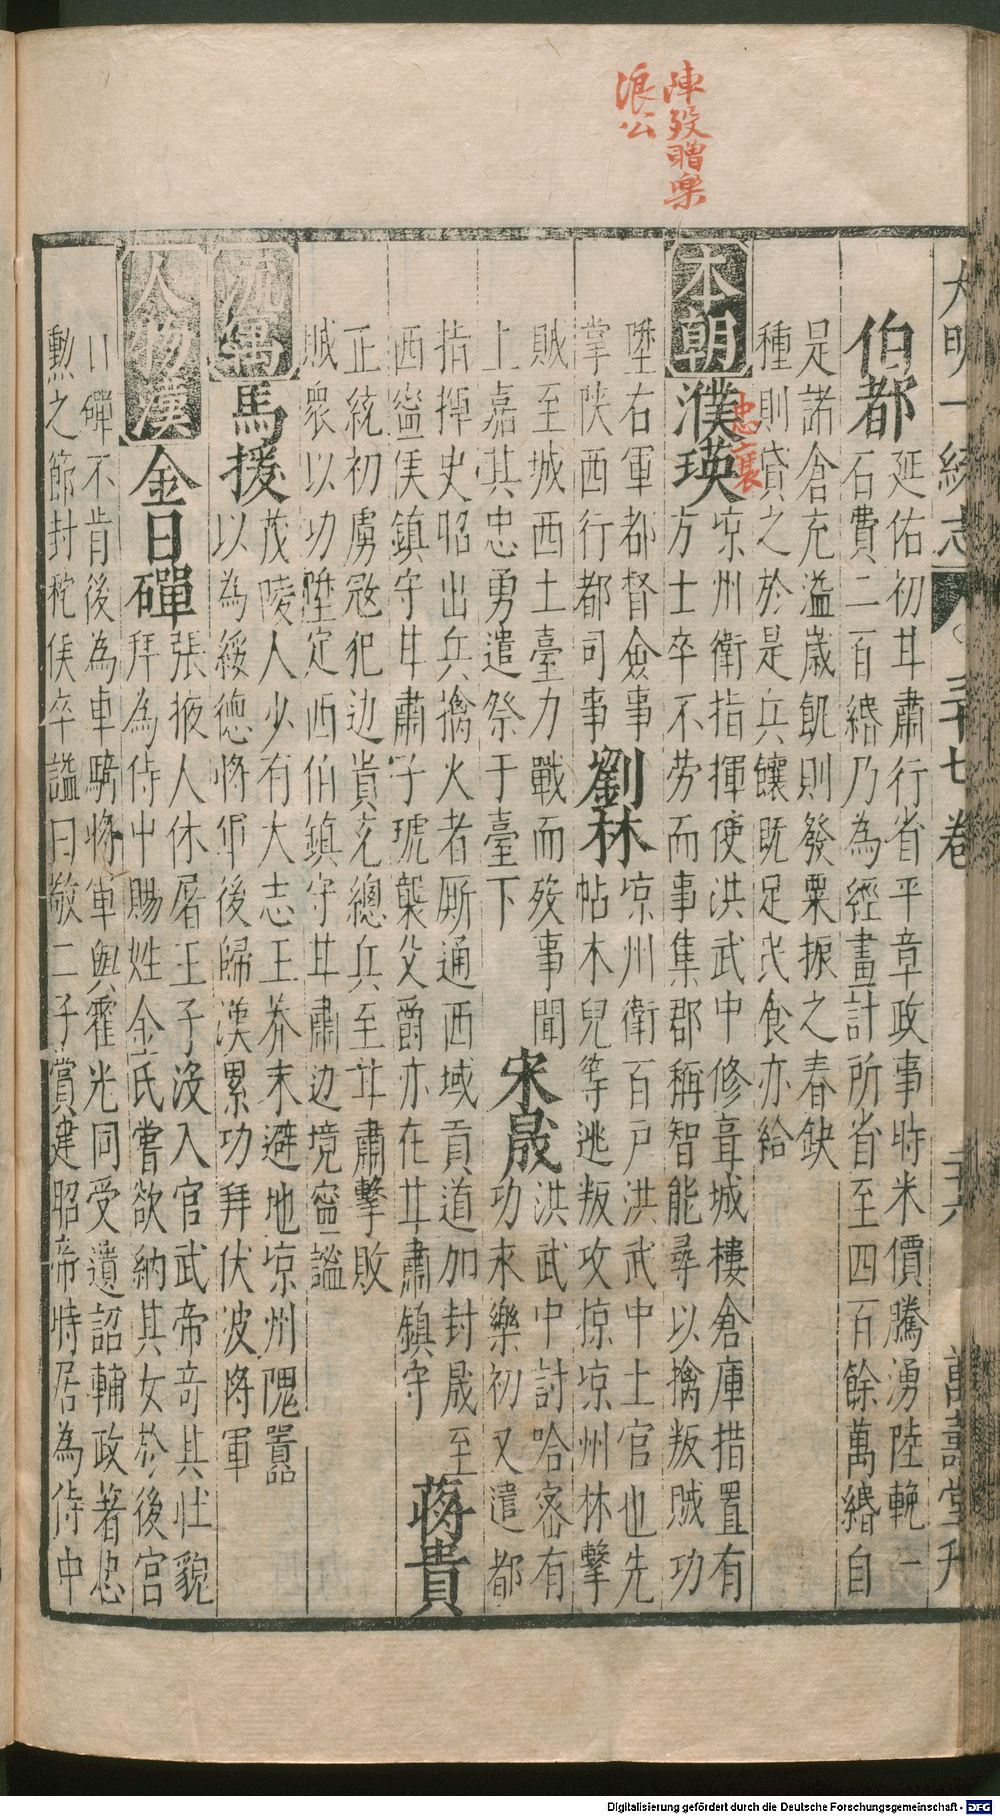 陣歿贈樂
浪公
大明一統志 卷三十七 二十六 萬壽堂刊
伯都
延佑初甘肅行省平章政事時米價騰湧陸輓一
石費二百緡乃為經畫計所省至四百餘萬緡自
是諸倉充溢歲飢則發粟振之春缺
種則貸之於是兵饟既足民食亦給
本朝
濮英
忠襄
凉州衛指揮使洪武中修葺城樓倉庫措置有
方士卒不劳而事集郡稱智能尋以擒叛賊功
陞右軍都督僉事
掌陜西行都司事
劉林
凉州衛百戶洪武中土官也先
帖木兒等逃叛攻掠凉州林擊
賊至城西土臺力戰而歿事聞
上嘉其忠勇遣祭于臺下
宋晟
洪武中討哈密有
功永樂初又遣都
指揮史昭出兵擒火者厮通西域貢道加封晟至
西寧侯鎮守甘肅子琥襲父爵亦在甘肅鎮守
蒋貴
正統初虜冦犯边貴充總兵至甘肅擊敗
賊衆以功陞定西伯鎮守甘肅边境寧謐
流寓
馬援
茂陵人少有大志王莽末避地凉州隗囂
以為綏德將軍後歸漢累功拜伏波將軍
人物漢
金日磾
張掖人休屠王子沒入官武帝奇其壮貌
拜為侍中賜姓金氏嘗欲納其女於後宮
日磾不肯後為車騎將軍與霍光同受遺詔輔政著忠
勲之節封秺侯卒謚曰敬二子賞建昭帝時居為侍中
Digitalisierung gefördert durch die Deutsche Forschungsgemeinschaft - DFG